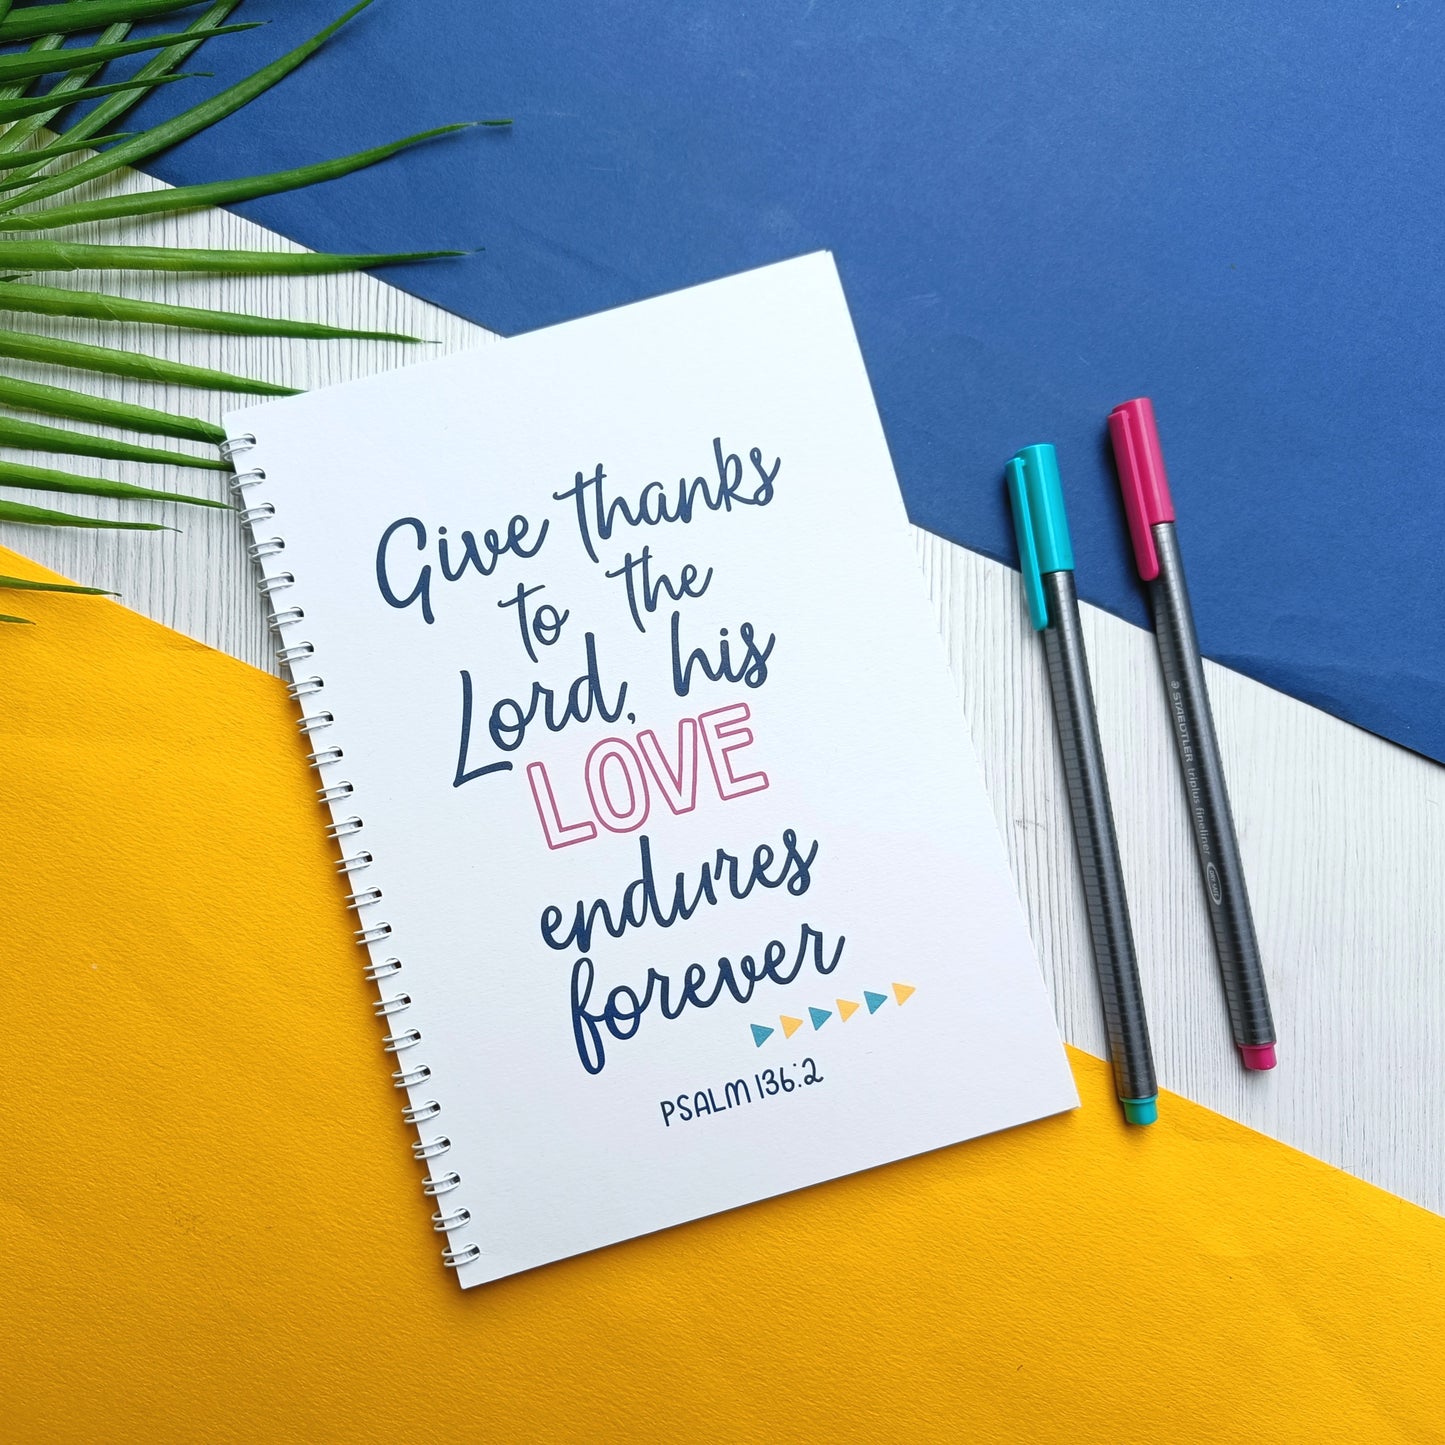 Give thanks
to the
Lord, his
LOVE
endures
forever
PSALM 136:2
STAEDTLER triplus fineliner
DRY SAFE